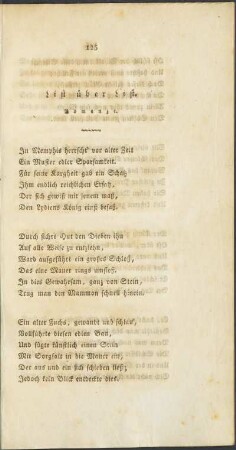 125
List über List.
Romanze.
In Memphis herrscht' vor alter Zeit
Ein Muster edler Sparsamkeit.
Für seine Kargheit gab ein Schatz
Ihm endlich reichlichen Ersatz,
Der sich gewiß mit jenem maß,
Den Lydiens König einst besaß.
Durch sichre Hut den Dieben ihn
Auf alle Weise zu entziehn,
Ward aufgeführt ein großes Schloß,
Das eine Mauer rings umfloß.
In dies Gewahrsam, ganz von Stein,
Trug man den Mammon schnell hinein.
Ein alter Fuchs, gewandt und schlau,
Vollführte diesen edlen Bau,
Und fügte künstlich einen Stein
Mit Sorgfalt in die Mauer ein,
Der aus und ein sich schieben ließ;
Jedoch kein Blick entdeckte dies.